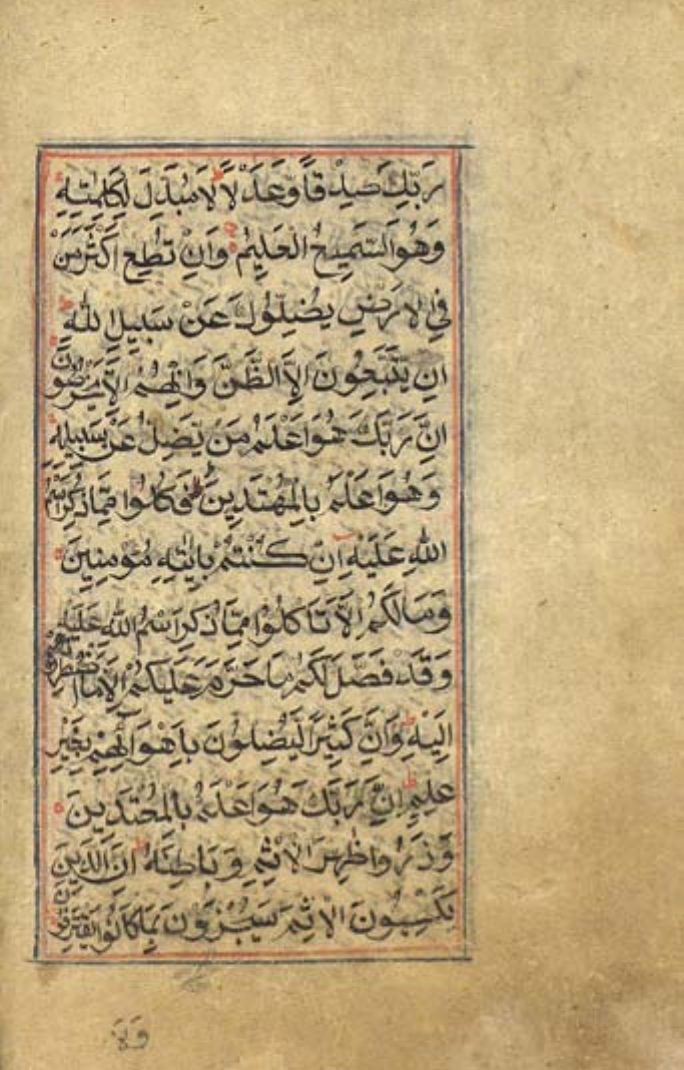 رَبِّكَ صِدْقًا وَعَدْلًا لَا مُبَدِّلَ لِكَلِمٰتِهٖ
وَهُوَ السَّمِيعُ الْعَلِيمُ وَاِنْ تُطِعْ اَكْثَرَ مَنْ
فِي الْاَرْضِ يُضِلُّوكَ عَنْ سَبِيلِ اللّٰهِ
اِنْ يَتَّبِعُونَ اِلَّا الظَّنَّ وَاِنْ هُمْ اِلَّا يَخْرُصُونَ
اِنَّ رَبَّكَ هُوَ اَعْلَمُ مَنْ يَضِلُّ عَنْ سَبِيلِهٖ
وَهُوَ اَعْلَمُ بِالْمُهْتَدِينَ فَكُلُوا مِمَّا ذُكِرَ اسْمُ
اللّٰهِ عَلَيْهِ اِنْ كُنْتُمْ بِاٰيٰتِهٖ مُؤْمِنِينَ
وَمَا لَكُمْ اَلَّا تَاْكُلُوا مِمَّا ذُكِرَ اسْمُ اللّٰهِ عَلَيْهِ
وَقَدْ فَصَّلَ لَكُمْ مَا حَرَّمَ عَلَيْكُمْ اِلَّا مَا اضْطُرِرْتُمْ
اِلَيْهِ وَاِنَّ كَثِيرًا لَيُضِلُّونَ بِاَهْوَائِهِمْ بِغَيْرِ
عِلْمٍ اِنَّ رَبَّكَ هُوَ اَعْلَمُ بِالْمُعْتَدِينَ
وَذَرُوا ظَاهِرَ الْاِثْمِ وَبَاطِنَهُ اِنَّ الَّذِينَ
يَكْسِبُونَ الْاِثْمَ سَيُجْزَوْنَ بِمَا كَانُوا يَقْتَرِفُونَ
وَلَا